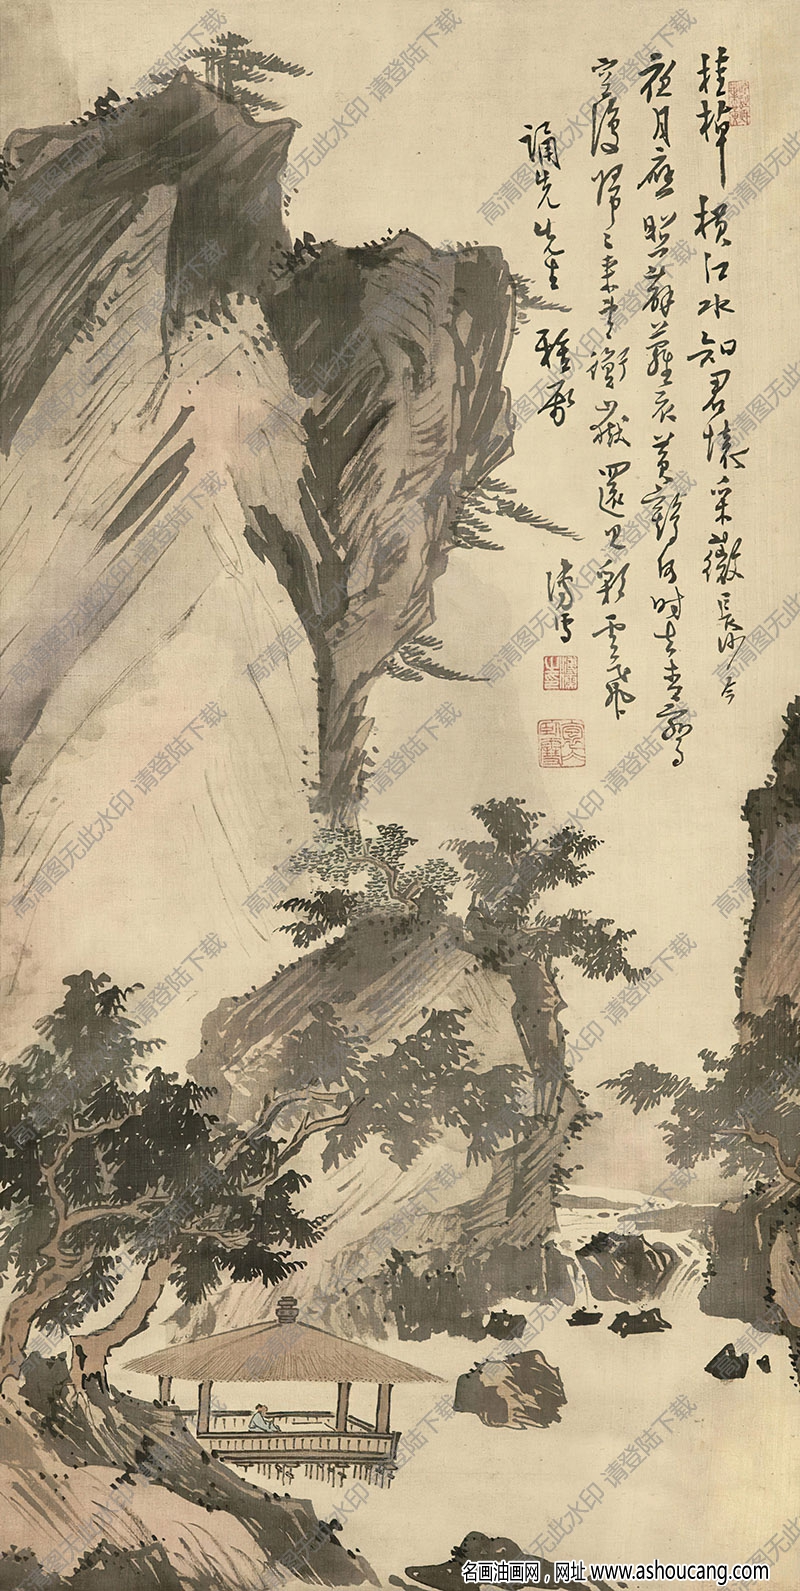 桂棹橫江水知君懷采薇長沙今
夜月應照薜蘿衣黃鶴何時去青鸞
空復歸〻來衡嶽還見彩雲飛
誦先先生 雅屬
溥儒
高清图无此水印 请登陆下载
名画油画网，网址 www.ashoucang.com